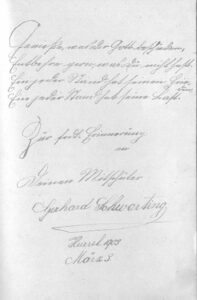 Genieße, was dir Gott beschieden,
Entbehre gern, was du nicht hast.
Ein jeder Stand hat seinen Frieden,
Ein jeder Stand hat seine Last.
Zur frdl. Erinnerung
an
Deinen Mitschüler
Gerhard Schwarting
Hurrel 1903
März 3.